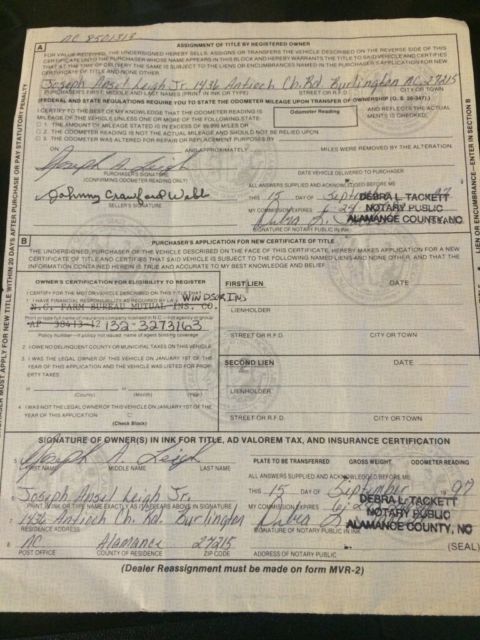 NC 8501313
A ASSIGNMENT OF TITLE BY REGISTERED OWNER
FOR VALUE RECEIVED, THE UNDERSIGNED HEREBY SELLS, ASSIGNS OR TRANSFERS THE VEHICLE DESCRIBED ON THE REVERSE SIDE OF THIS
CERTIFICATE UNTO THE PURCHASER WHOSE NAME APPEARS IN THIS BLOCK AND HEREBY WARRANTS THE TITLE TO SAID VEHICLE AND CERTIFIES
THAT AT THE TIME OF DELIVERY THE SAME IS SUBJECT TO THE LIENS OR ENCUMBRANCES NAMED IN THE PURCHASER'S APPLICATION FOR NEW
CERTIFICATE OF TITLE AND NONE OTHER.
Joseph Ansel Leigh Jr. 1436 Antioch Ch. Rd Burlington NC 27215
PURCHASER'S FIRST, MIDDLE AND LAST NAMES (PRINT IN INK OR TYPE) STREET OR R.F.D. CITY OR TOWN
(FEDERAL AND STATE REGULATIONS REQUIRE YOU TO STATE THE ODOMETER MILEAGE UPON TRANSFER OF OWNERSHIP (G. S. 20-347).)
I CERTIFY TO THE BEST OF MY KNOWLEDGE THAT THE ODOMETER READING IS
Odometer Reading
AND REFLECTS THE ACTUAL
MILEAGE OF THE VEHICLE UNLESS ONE OR MORE OF THE FOLLOWING
MENTS IS CHECKED.
1. THE AMOUNT OF MILEAGE STATED IS IN EXCESS OF 99,999 MILES OR
2. THE ODOMETER READING IS NOT THE ACTUAL MILEAGE AND SHOULD NOT BE RELIED UPON.
3. THE ODOMETER WAS ALTERED FOR REPAIR OR REPLACEMENT PURPOSES BY
ON AND APPROXIMATELY MILES WERE REMOVED BY THE ALTERATION.
Joseph A. Leigh
PURCHASER'S SIGNATURE
(CONFIRMING ODOMETER READING ONLY)
DATE VEHICLE DELIVERED TO PURCHASER
ALL ANSWERS SUPPLIED AND ACKNOWLEDGED BEFORE ME
Johnny Crawford Webb
SELLER'S SIGNATURE
THIS 15 DAY OF 97
MY COMMISSION EXPIRES
DEBRA L. TACKETT
NOTARY PUBLIC
ALAMANCE COUNTY, NC
SIGNATURE OF NOTARY PUBLIC IN INK
B PURCHASER'S APPLICATION FOR NEW CERTIFICATE OF TITLE
THE UNDERSIGNED, PURCHASER OF THE VEHICLE DESCRIBED ON THE FACE OF THIS CERTIFICATE, HEREBY MAKES APPLICATION FOR A NEW
CERTIFICATE OF TITLE AND CERTIFIES THAT SAID VEHICLE IS SUBJECT TO THE FOLLOWING NAMED LIENS AND NONE OTHER, AND THAT THE
INFORMATION CONTAINED HEREIN IS TRUE AND ACCURATE TO MY BEST KNOWLEDGE AND BELIEF.
OWNER'S CERTIFICATION FOR ELIGIBILITY TO REGISTER
I CERTIFY FOR THE MOTOR VEHICLE DESCRIBED ON THIS TITLE
1. I HAVE FINANCIAL RESPONSIBILITY AS REQUIRED BY LAW
WINDSOR INS
N.C. FARM BUREAU MUTUAL INS. CO.
Print or type full name of insurance company licensed in N.C. - not agency or group
AP 38413-42 132-3273163
Policy number - if policy not issued, name of agent binding coverage
2. I OWE NO DELINQUENT COUNTY OR MUNICIPAL TAXES ON THIS VEHICLE
3. I WAS THE LEGAL OWNER OF THIS VEHICLE ON JANUARY 1ST OF THE
YEAR OF THIS APPLICATION AND THE VEHICLE WAS LISTED FOR PROP-
ERTY TAXES
(County) (Month) (Year)
4. I WAS NOT THE LEGAL OWNER OF THIS VEHICLE ON JANUARY 1ST OF THE
YEAR OF THIS APPLICATION
(Check Block)
FIRST LIEN DATE
LIENHOLDER
STREET OR R.F.D. CITY OR TOWN
SECOND LIEN DATE
LIENHOLDER
STREET OR R.F.D. CITY OR TOWN
SIGNATURE OF OWNER(S) IN INK FOR TITLE, AD VALOREM TAX, AND INSURANCE CERTIFICATION
5. Joseph A. Leigh
FIRST NAME MIDDLE NAME LAST NAME
PLATE TO BE TRANSFERRED GROSS WEIGHT ODOMETER READING
ALL ANSWERS SUPPLIED AND ACKNOWLEDGED BEFORE ME
6. Joseph Ansel Leigh Jr.
PRINT IN INK OR TYPE NAME EXACTLY AS IT APPEARS ABOVE IN SIGNATURE
THIS 15 DAY OF September 1997
MY COMMISSION EXPIRES
DEBRA L. TACKETT
NOTARY PUBLIC
ALAMANCE COUNTY, NC
7. 1436 Antioch Ch. Rd. Burlington
RESIDENCE ADDRESS
SIGNATURE OF NOTARY PUBLIC IN INK
(SEAL)
8. NC Alamance 27215
POST OFFICE COUNTY OF RESIDENCE ZIP CODE ADDRESS OF NOTARY PUBLIC
(Dealer Reassignment must be made on form MVR-2)
PURCHASER MUST APPLY FOR NEW TITLE WITHIN 20 DAYS AFTER PURCHASE OR PAY STATUTORY PENALTY
LIEN OR ENCUMBRANCE—ENTER IN SECTION B